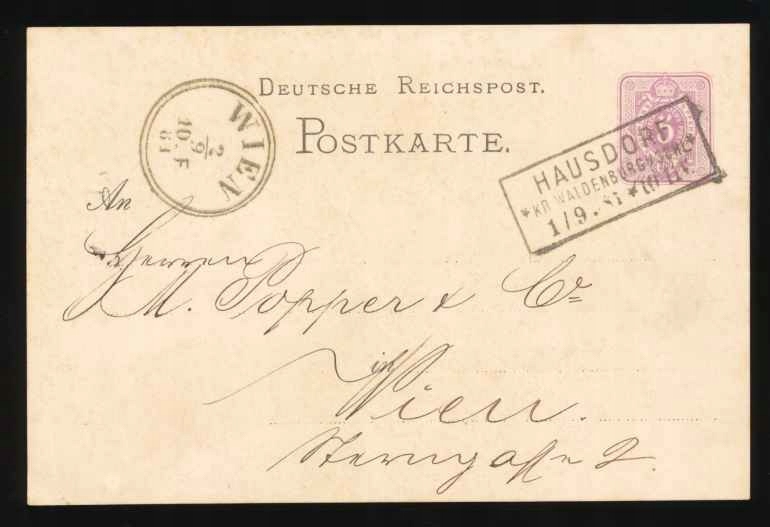 DEUTSCHE REICHSPOST.
POSTKARTE.
WIEN
2/9
10.F
81
5
HAUSDORF
*KR WALDENBURG
1/9.81*
An
Herren
M. Popper & Co
in Wien.
Sterngasse 2.